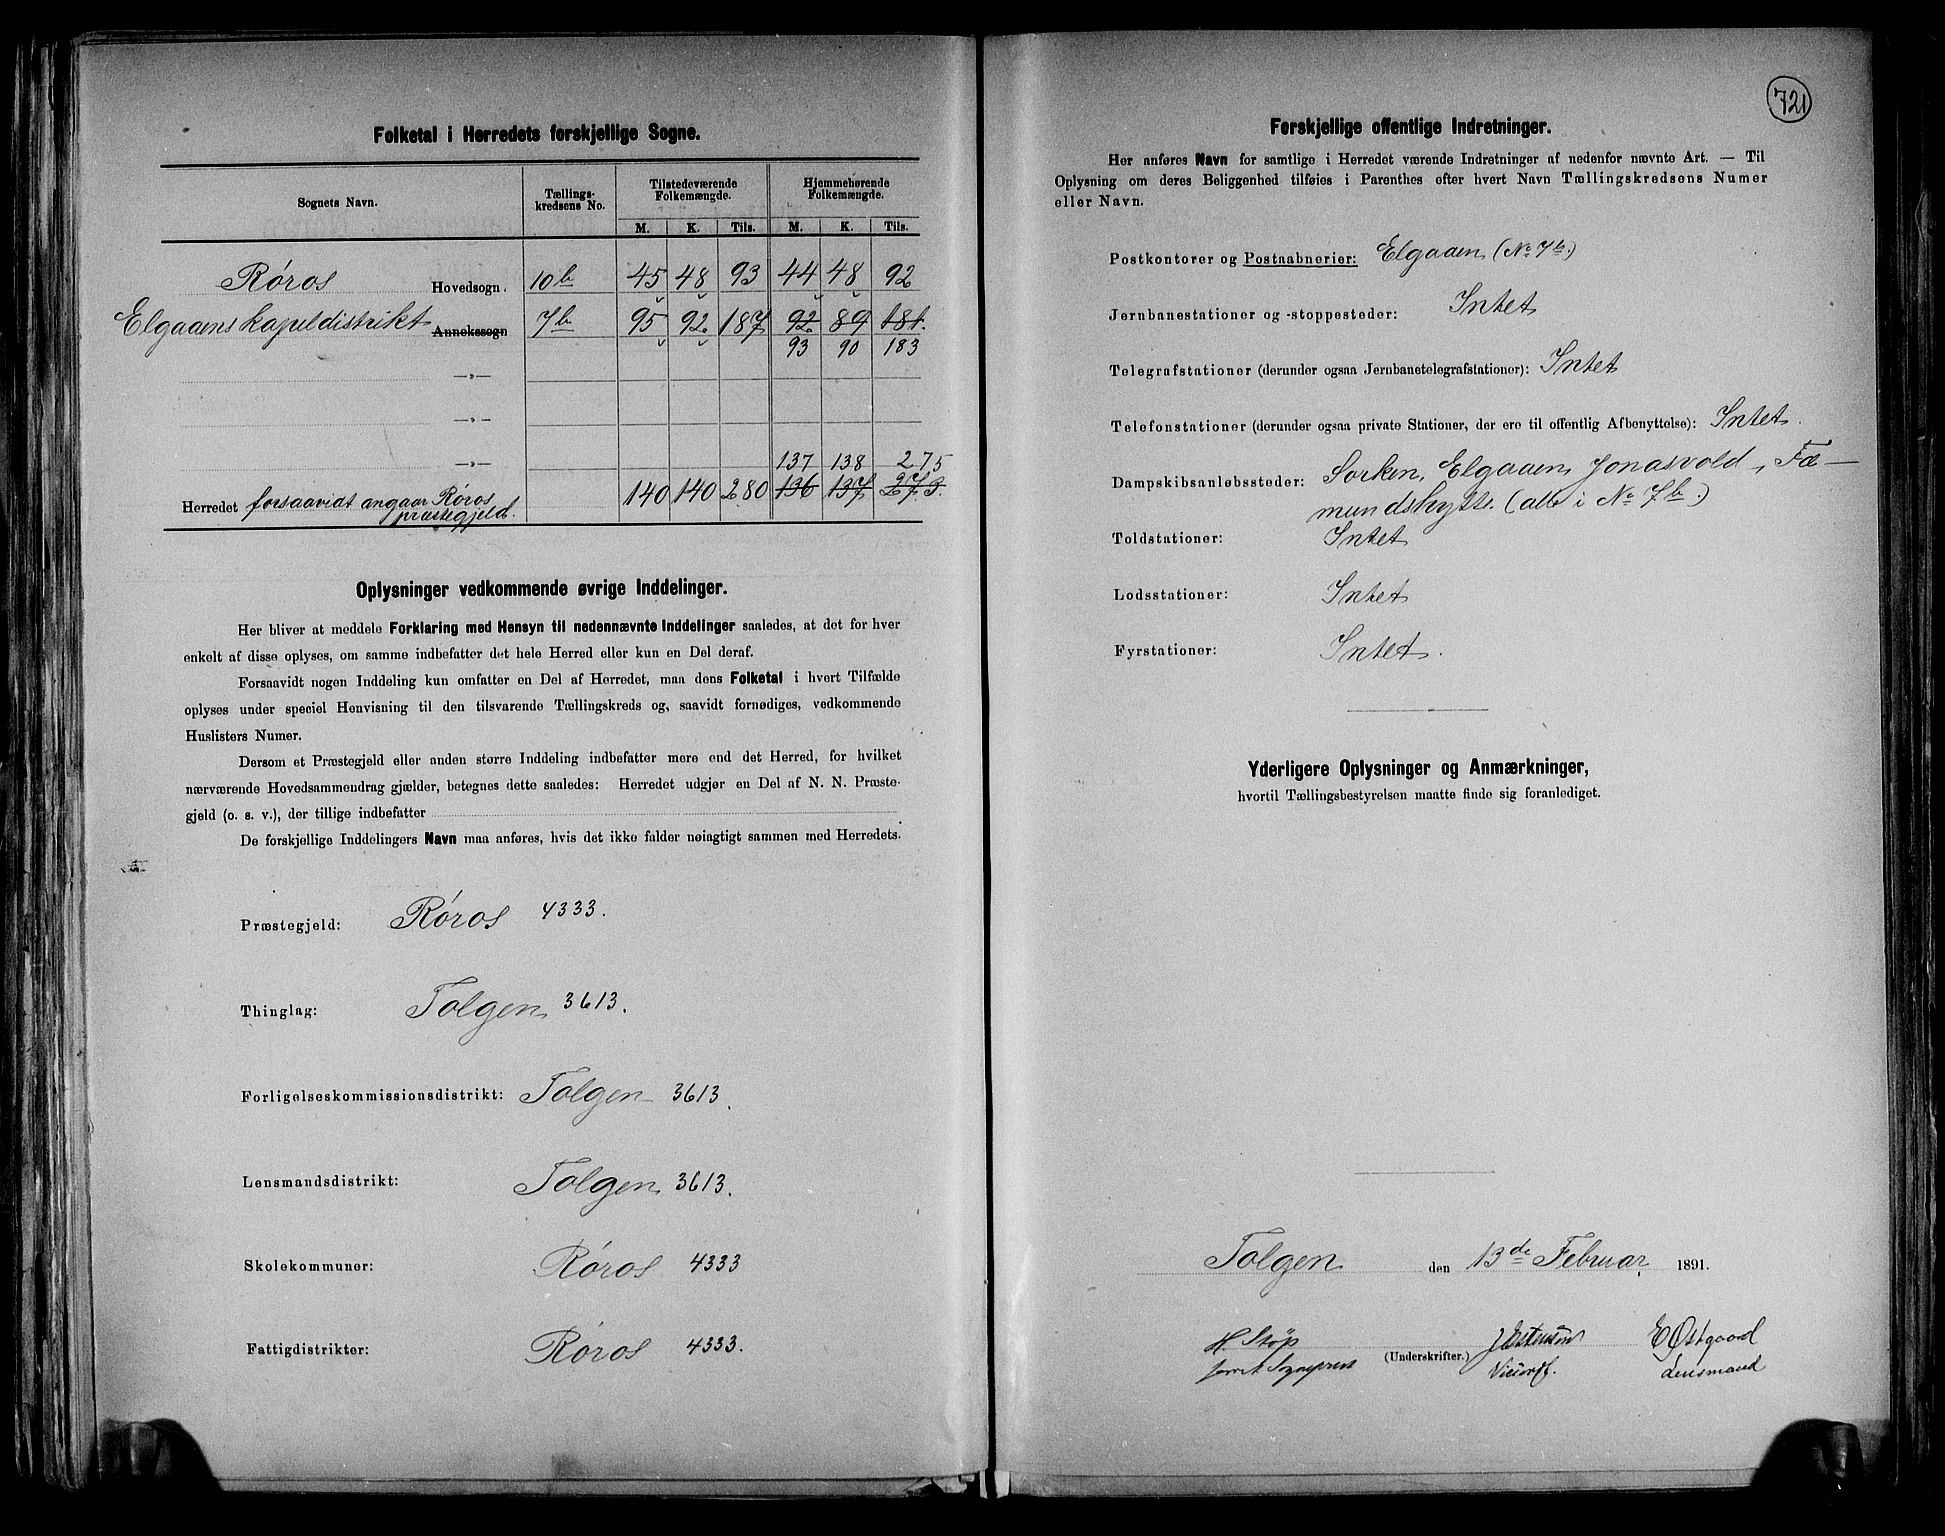 Folketal i Herredets forskjellige Sogne.
Sognets Navn. Tællings-kredsens No. Tilstedeværende Folkemængde. Hjemmehørende Folkemængde.
M. K. Tils. M. K. Tils.
Røros Hovedsogn. 10b 45 48 93 44 48 92
Elgaaens kapeldistrikt Annekssogn 7b 95 92 187 92 89 181.
93 90 183
—„—
—„—
—„— 137 138 275
Herredet forsaavidt angaar Røros præstegjeld. 140 140 280 136 137 273.
Oplysninger vedkommende øvrige Inddelinger.
Her bliver at meddele Forklaring med Hensyn til nedennævnte Inddelinger saaledes, at det for hver
enkelt af disse oplyses, om samme indbefatter det hele Herred eller kun en Del deraf.
Forsaavidt nogen Inddeling kun omfatter en Del af Herredet, maa dens Folketal i hvert Tilfælde
oplyses under speciel Henvisning til den tilsvarende Tællingskreds og, saavidt fornødiges, vedkommende
Huslisters Numer.
Dersom et Præstegjeld eller anden større Inddeling indbefatter mere end det Herred, for hvilket
nærværende Hovedsammendrag gjælder, betegnes dette saaledes: Herredet udgjør en Del af N. N. Præste-
gjeld (o. s. v.), der tillige indbefatter
De forskjellige Inddelingers Navn maa anføres, hvis det ikke falder nøiagtigt sammen med Herredets.
Præstegjeld: Røros 4333.
Thinglag: Tolgen 3613.
Forligelseskommissionsdistrikt: Tolgen 3613.
Lensmandsdistrikt: Tolgen 3613.
Skolekommuner: Røros 4333
Fattigdistrikter: Røros 4333.
721
Forskjellige offentlige Indretninger.
Her anføres Navn for samtlige i Herredet værende Indretninger af nedenfor nævnte Art. — Til
Oplysning om deres Beliggenhed tilføies i Parenthes efter hvert Navn Tællingskredsens Numer
eller Navn.
Postkontorer og Postaabnerier: Elgaaen (No 7b.)
Jernbanestationer og -stoppesteder: Intet
Telegrafstationer (derunder ogsaa Jernbanetelegrafstationer): Intet
Telefonstationer (derunder ogsaa private Stationer, der ere til offentlig Afbenyttelse): Intet.
Dampskibsanløbssteder: Sorken, Elgaaen, Jonasvold, Fæ-
mundshytte. (alle i No 7b.)
Toldstationer: Intet
Lodsstationer: Intet
Fyrstationer: Intet.
Yderligere Oplysninger og Anmærkninger,
hvortil Tællingsbestyrelsen maatte finde sig foranlediget.
Tolgen den 13de Februar 1891.
H. Støp (Underskrifter.) J Estensen E Østgaard
Lensmand